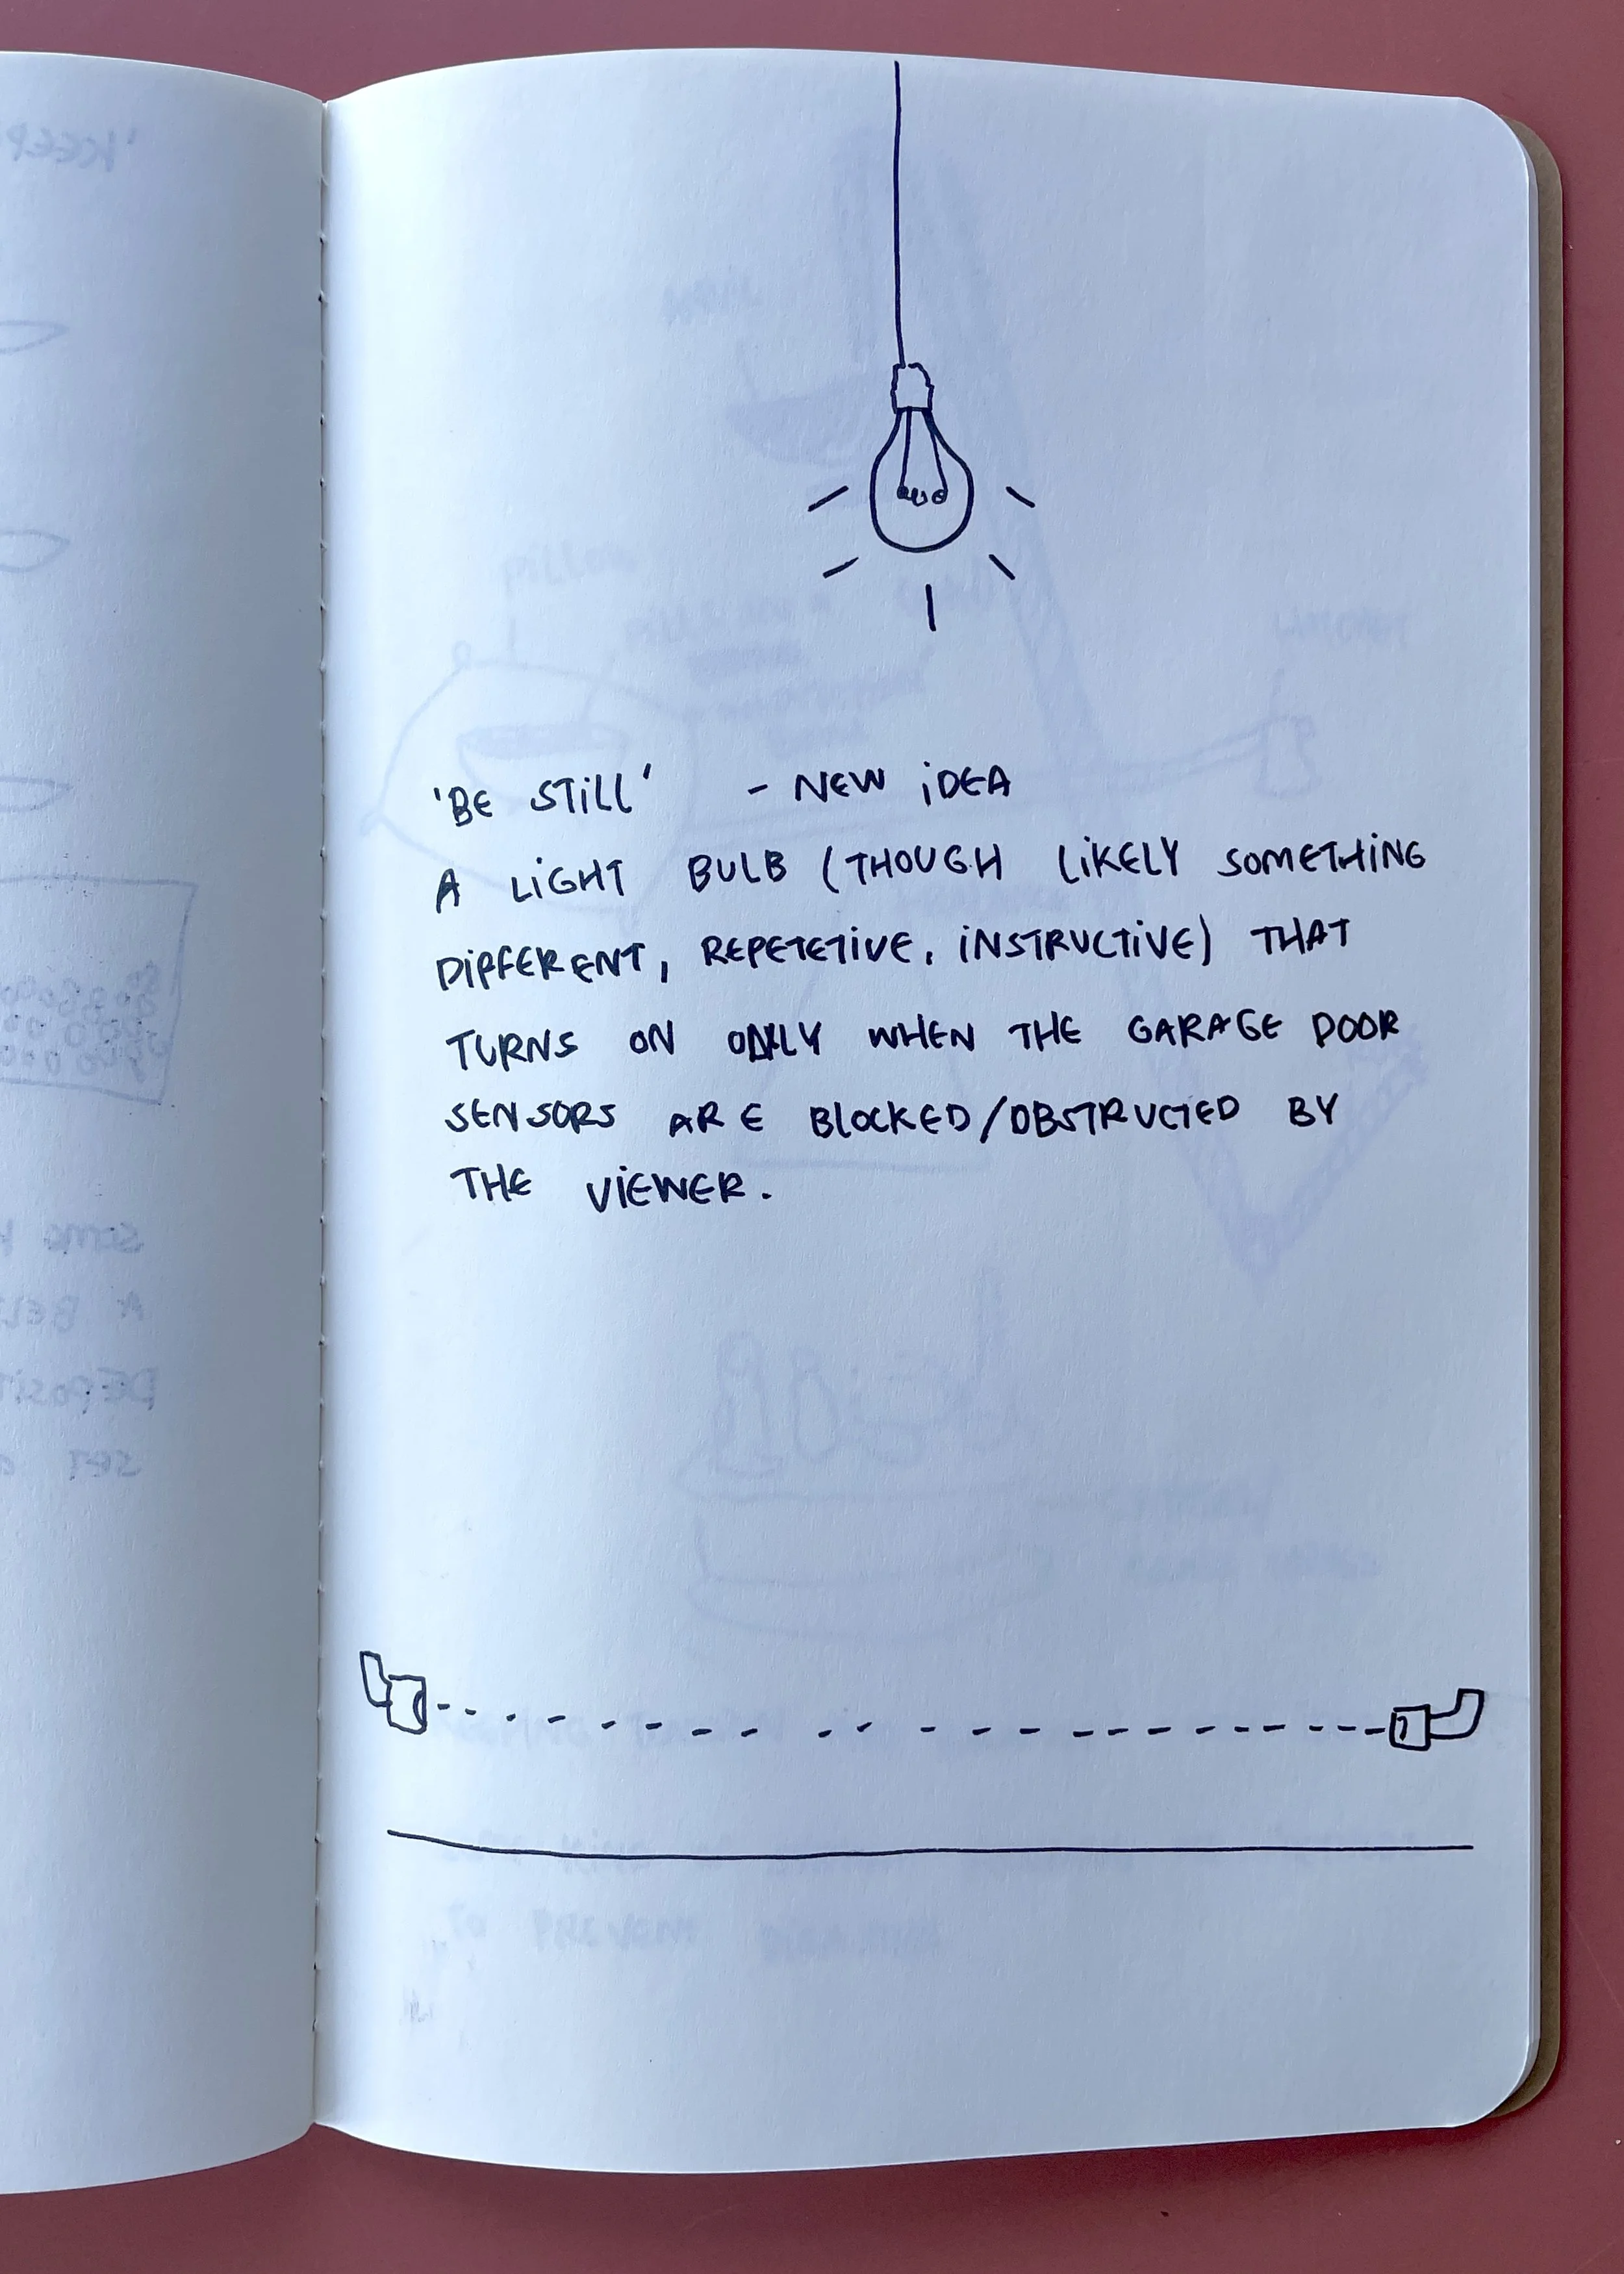 'BE STILL' - NEW IDEA
A LIGHT BULB (THOUGH LIKELY SOMETHING
DIFFERENT, REPETETIVE, INSTRUCTIVE) THAT
TURNS ON ONLY WHEN THE GARAGE DOOR
SENSORS ARE BLOCKED/OBSTRUCTED BY
THE VIEWER.